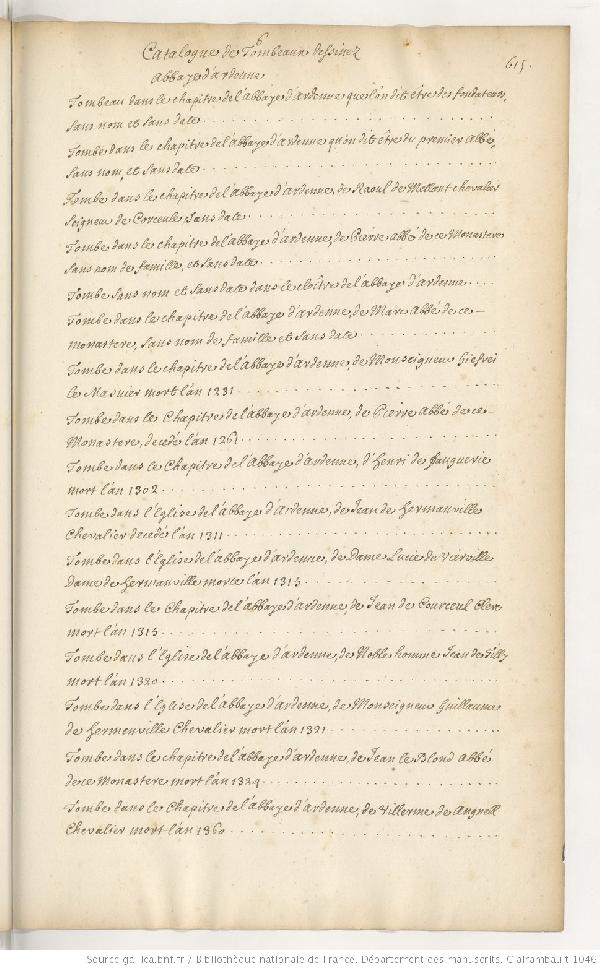 6
Catalogue de Tombeaux dessinez
615.
Abbaye d'ardenne
Tombeau dans le chapitre de l'abbaye d'Ardenne que l'on dit être des fondateurs,
sans nom et sans date
Tombe dans le chapitre de l'abbaye d'ardenne qu'on dit être du premier Abbé,
sans nom, et sans date
Tombe dans le chapitre de l'abbaye d'ardenne, de Raoul de Mellont chevalier
seigneur de Corceule sans date
Tombe dans le chapitre de l'abbaye d'ardenne, de Pierre Abbé de ce Monastere
sans nom de famille, et sans date
Tombe sans nom et sans date dans le cloître de l'abbaye d'ardenne
Tombe dans le chapitre de l'abbaye d'Ardenne, de Marc Abbé de ce
monastere, sans nom de famille et sans date
Tombe dans le chapitre de l'abbaye d'Ardenne, de Monseigneur Giefrei
le Masnier mort l'an 1231
Tombe dans le Chapitre de l'abbaye d'ardenne, de Pierre Abbé de ce
Monastere, decedé l'an 1261
Tombe dans le Chapitre de l'Abbaye d'Ardenne, d'Henri de Fauguerie
mort l'an 1302
Tombe dans l'Eglise de l'abbaye d'Ardenne, de Jean de Hermanville
Chevalier decedé l'an 1311
Tombe dans l'Eglise de l'abbaye d'ardenne, de Dame Lucie de Vierville
Dame de Hermanville morte l'an 1315
Tombe dans le Chapitre de l'abbaye d'ardenne, de Jean de Courceul Clerc
mort l'an 1315
Tombe dans l'Eglise de l'abbaye d'ardenne, de Noble homme Jean de Tilly
mort l'an 1320
Tombe dans l'Eglise de l'abbaye d'ardenne, de Monseigneur Guillaume
de Hermenville Chevalier mort l'an 1321
Tombe dans le chapitre de l'abbaye d'ardenne, de Jean le Blond Abbé
de ce Monastere mort l'an 1324
Tombe dans le Chapitre de l'abbaye d'Ardenne, de Villerme de
Chevalier mort l'an 1360
Source gallica.bnf.fr / Bibliothèque nationale de France. Département des manuscrits. Clairambault 1046